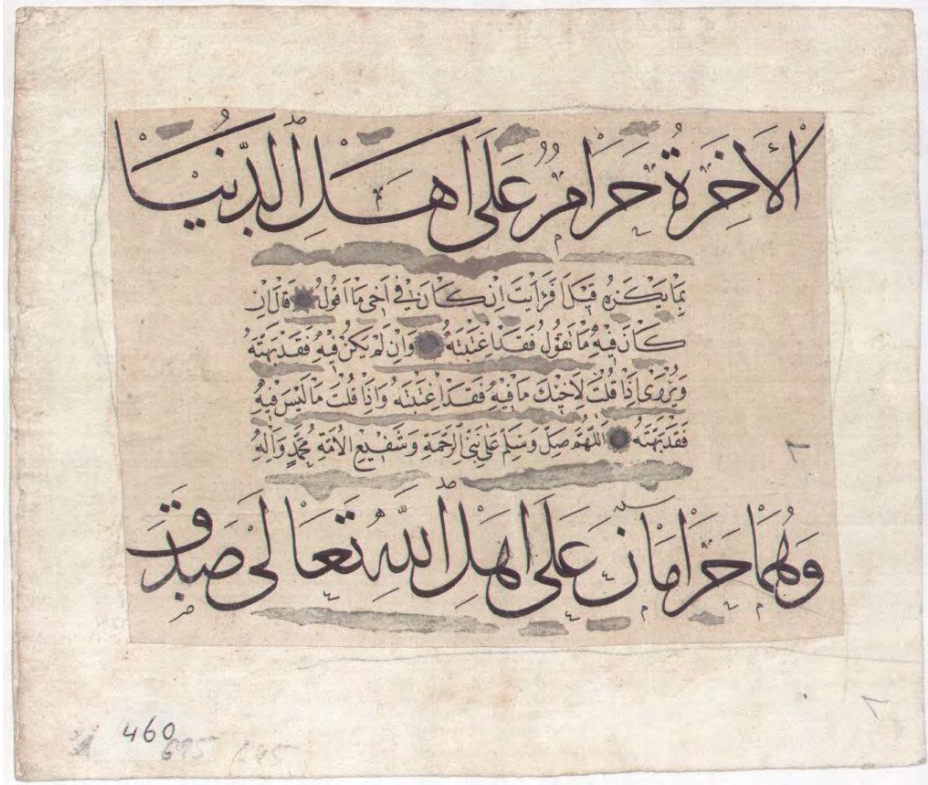 الْاٰخِرَةُ حَرَامٌ عَلَى اَهْلِ الدُّنْيَا
بِمَا يَكْرَهُ قِيلَ اَفَرَاَيْتَ اِنْ كَانَ فِى اَخِى مَا اَقُولُ قَالَ اِنْ
كَانَ فِيهِ مَا تَقُولُ فَقَدِ اغْتَبْتَهُ وَاِنْ لَمْ يَكُنْ فِيهِ فَقَدْ بَهَتَّهُ
وَيُرْوٰى اِذَا قُلْتَ لِاَخِيكَ مَا فِيهِ فَقَدِ اغْتَبْتَهُ وَاِذَا قُلْتَ مَا لَيْسَ فِيهِ
فَقَدْ بَهَتَّهُ اَللّٰهُمَّ صَلِّ وَسَلِّمْ عَلٰى نَبِىِّ الرَّحْمَةِ وَشَفِيعِ الْاُمَّةِ مُحَمَّدٍ وَاٰلِهِ
وَهُمَا حَرَامَانِ عَلَى اَهْلِ اللّٰهِ تَعَالٰى صَدَقَ
460
695 695